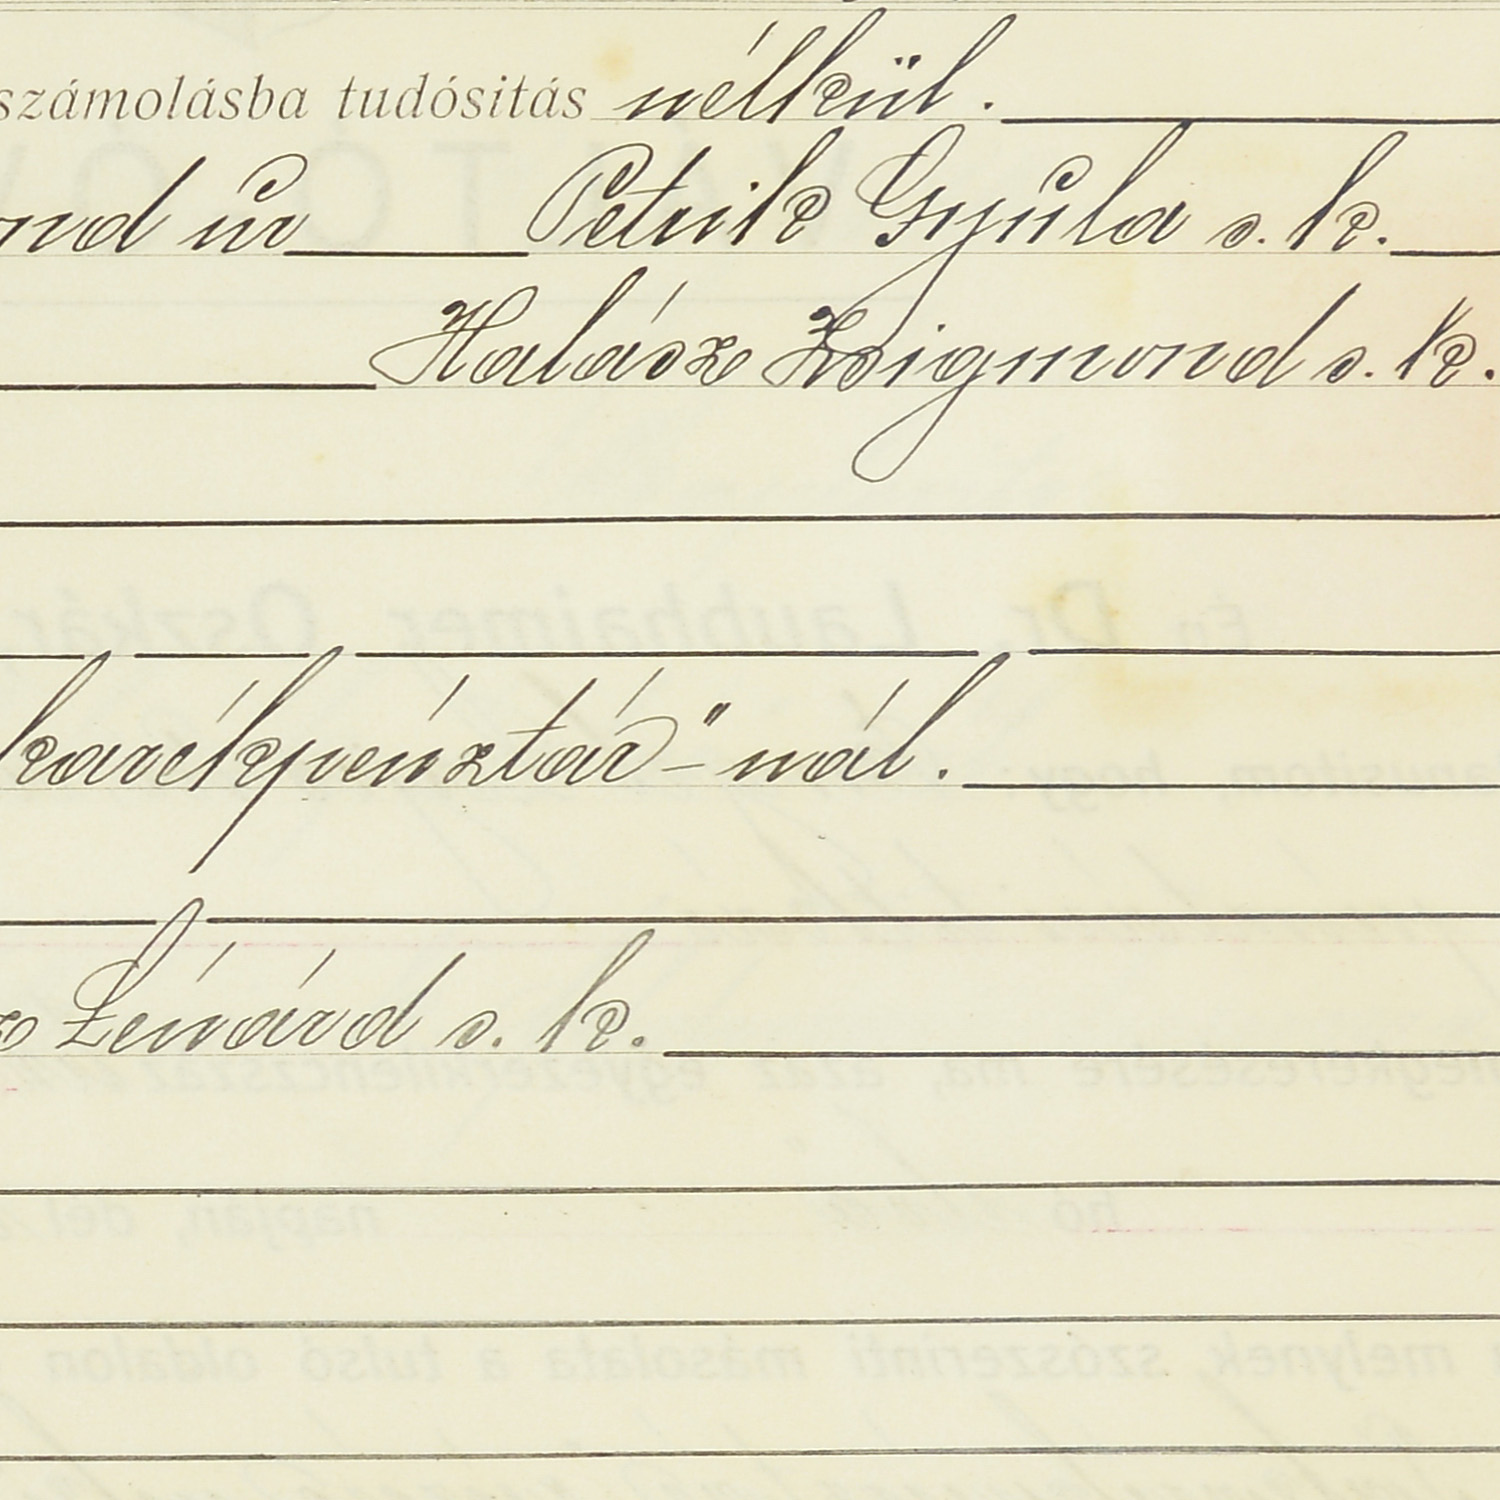 számolásba tudósitás nélkül.
ond úr Petrik Gyula s. k.
Halász Zsigmond s. k.
karékpénztár"-nál.
Lénárd s. k.